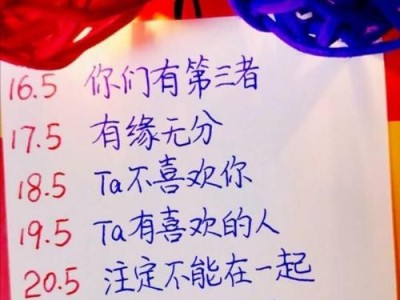 16.5 你们有第三者
17.5 有缘无分
18.5 Ta不喜欢你
19.5 Ta有喜欢的人
20.5 注定不能在一起